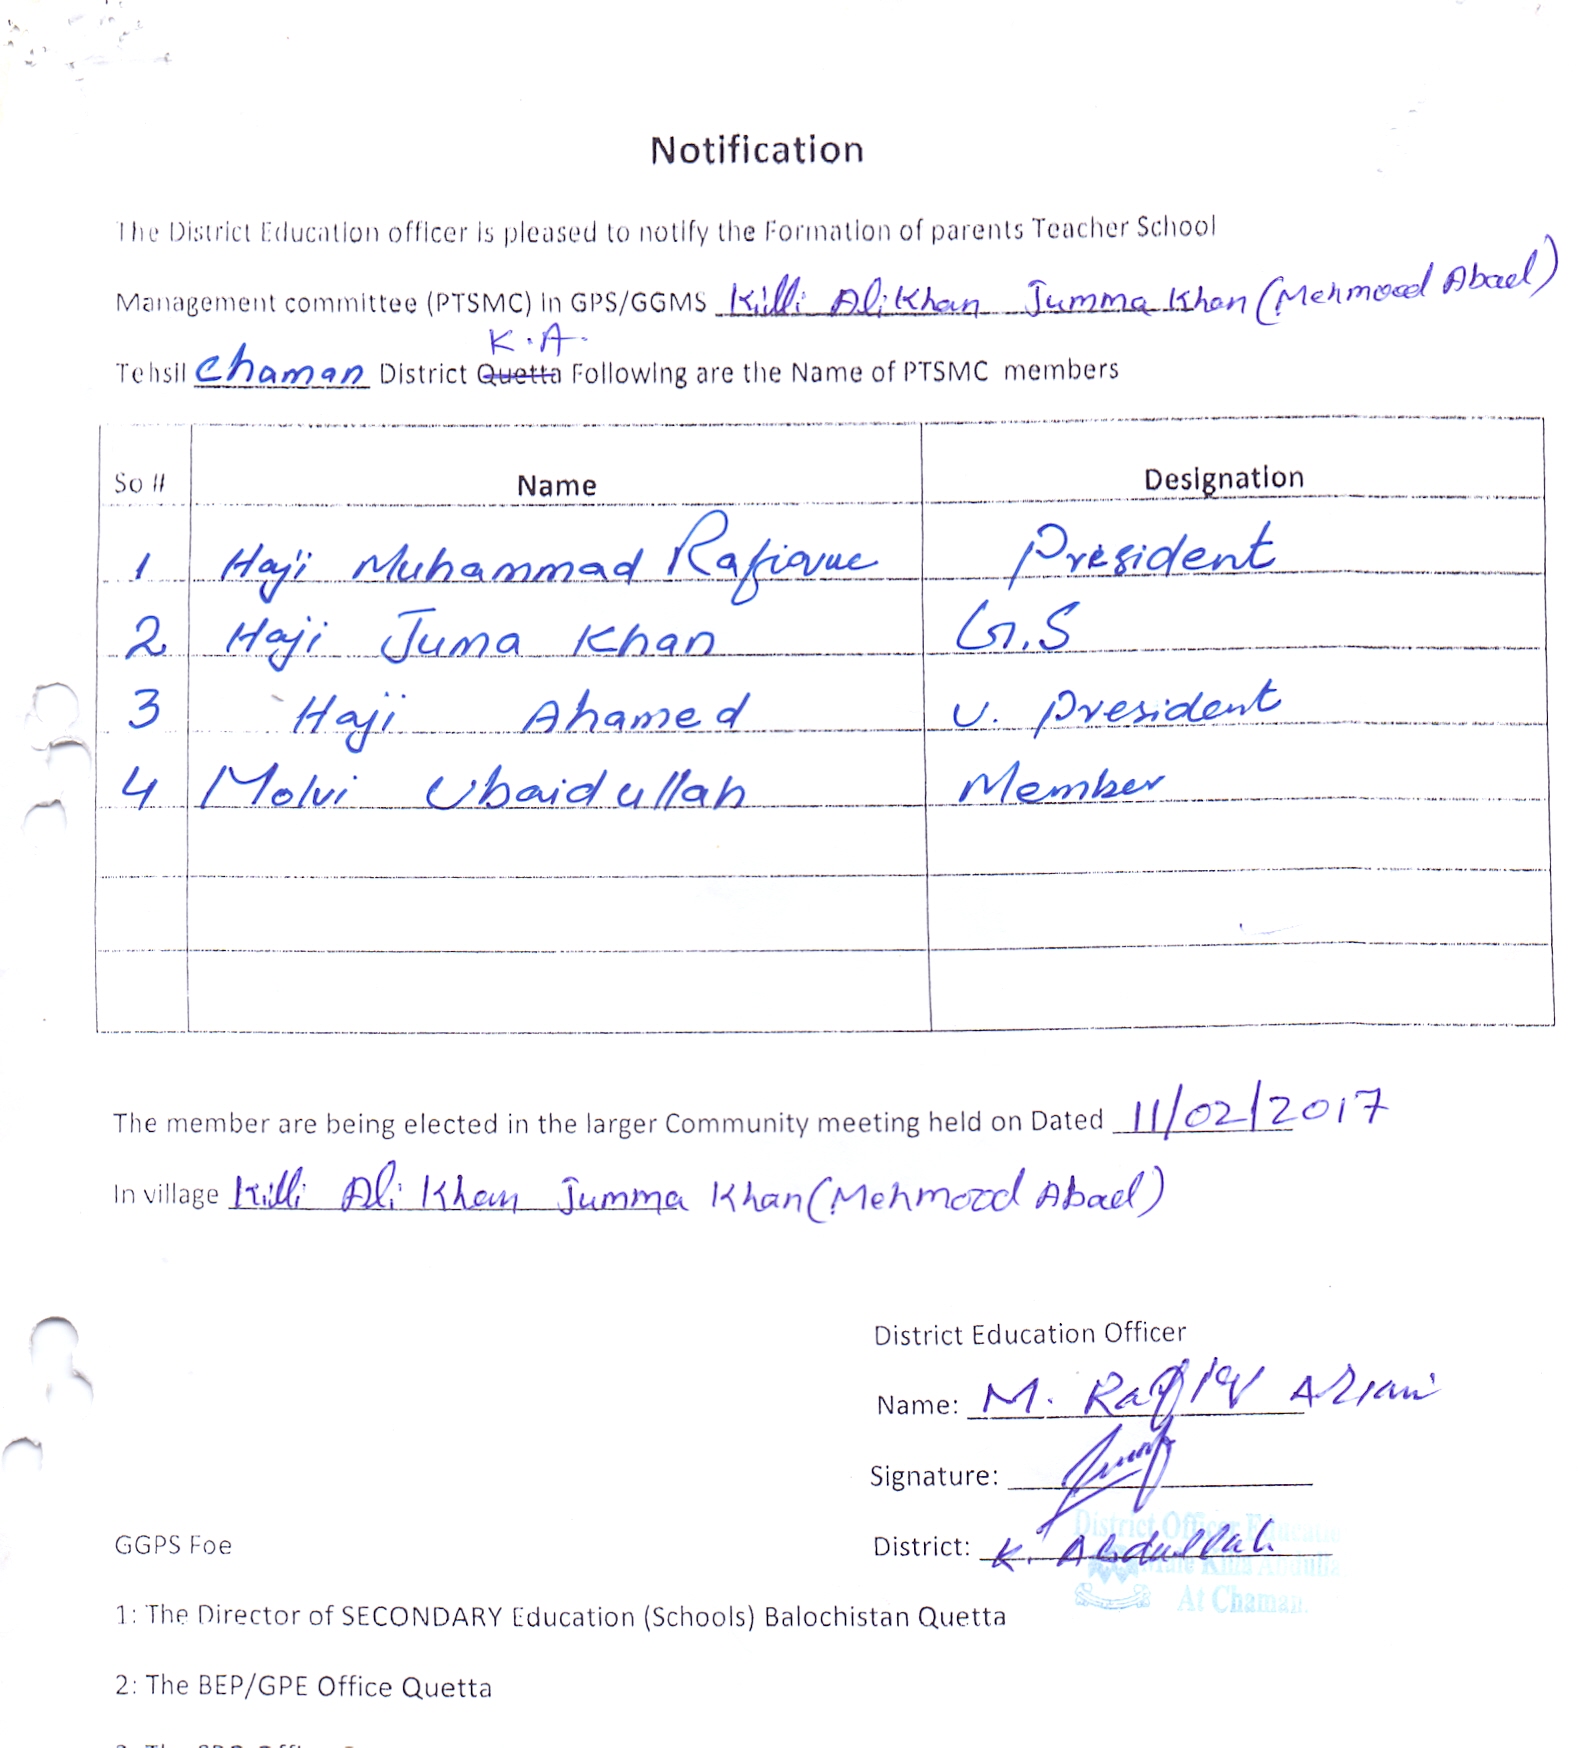 Notification
The District Education officer is pleased to notify the Formation of parents Teacher School
Management committee (PTSMC) in GPS/GGMS Killi Ali Khan Jumma Khan (Mehmood Abad)
K.A.
Tehsil Chaman District Quetta Following are the Name of PTSMC members
So # Name Designation
1 Haji Muhammad Rafique President
2 Haji Juma Khan G.S
3 Haji Ahamed V. President
4 Molvi Ubaidullah Member
The member are being elected in the larger Community meeting held on Dated 11/02/2017
In village Killi Ali Khan Jumma Khan (Mehmood Abad)
District Education Officer
Name: M. Rafiq
Signature:
District: K. Abdullah
District Officer Educatio
Male Killa Abdulla
At Chaman.
GGPS Foe
1: The Director of SECONDARY Education (Schools) Balochistan Quetta
2: The BEP/GPE Office Quetta